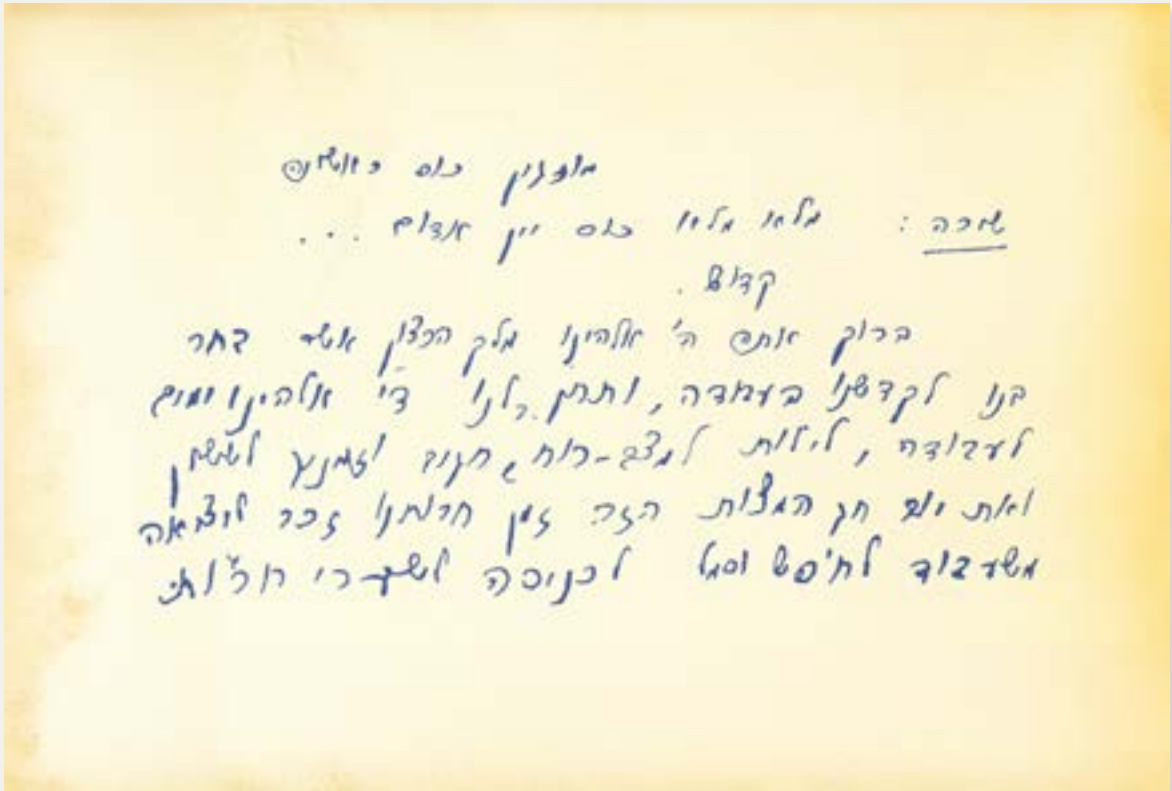 מוזגין כוס ראשונה
שירה : מלאו מלאו כוס יין אדום . . .
קדוש .
ברוך אתה ה' אלהינו מלך הרצון אשר בחר
בנו לקדשנו בעבודה, ותתן לנו ה' אלהינו ימים
לעבודה, לילות למצב-רוח, חגים וזמנים לששון
ואת יום חג המצות הזה זמן חרותנו זכר ליציאה
משעבוד לחופש וסמל לכניסה לשערי